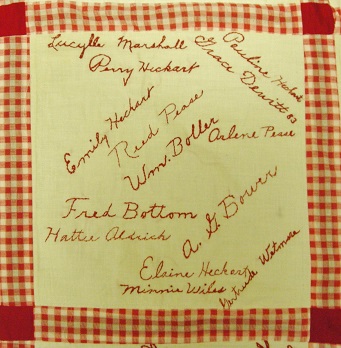 Lucylle Marshall
Pauline Heckart
Grace Dewitt 83
Perry Heckart
Emily Heckart
Reed Pease
Wm. Boller
Arlene Pease
Fred Bottom
Hattie Aldrich
A. G. Bower
Elaine Heckart
Minnie Wiles
Gertrude Witmer